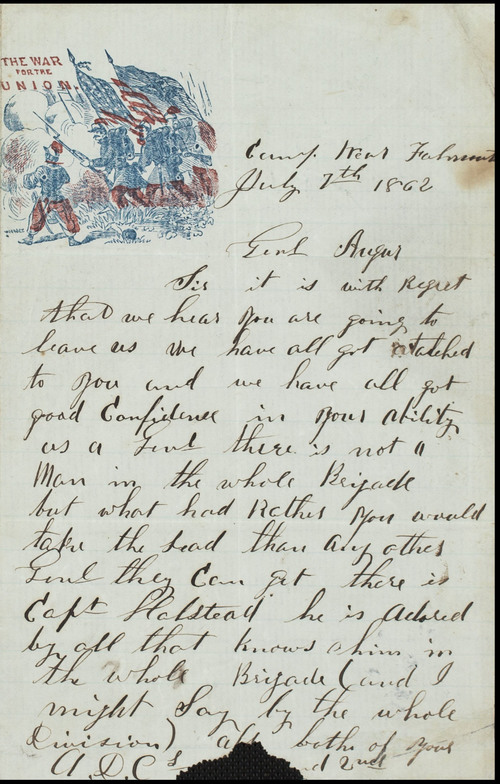 THE WAR
FOR THE
UNION.
Camp Near Falmout
July 7th 1862
Genl Augur
Sir it is with Regret
that we hear you are going to
leave us we have all got atatched
to you and we have all got
good Confidence in your ability
as a Genl there is not a
Man in the whole Brigade
but what had Rather you would
take the lead than any other
Genl they Can get there is
Capt Halstead he is Adored
by all that knows him in
the whole Brigade (and I
might Say by the whole
Division) all boths of your
A.D.C.s nd 2nd